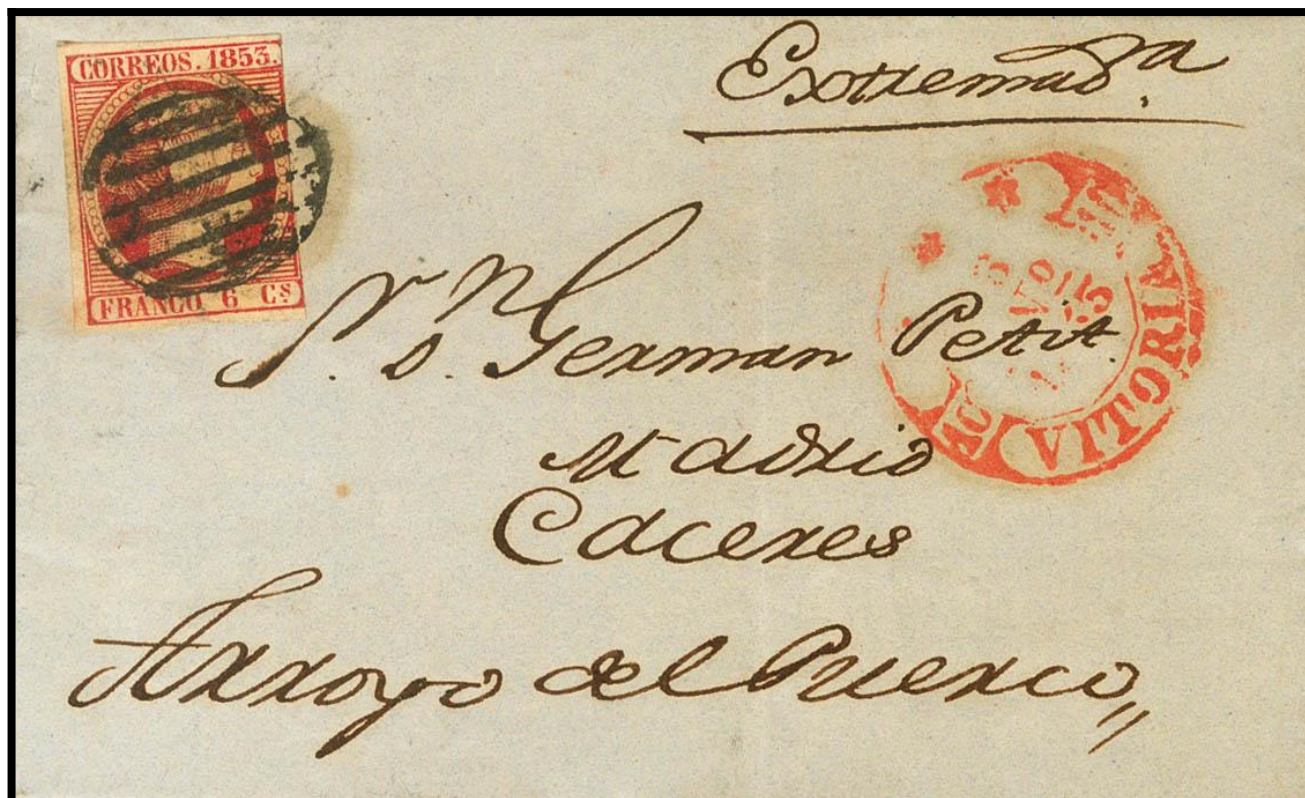 CORREOS. 1853.
FRANCO 6 Cs
Extremad.a
Sr. Dn. German Petit.
Madrid
Caceres
Arroyo del Puerco
VITORIA